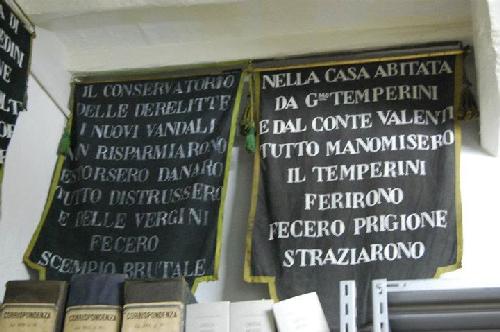 IL CONSERVATORIO
DELLE DERELITTE
I NUOVI VANDALI
NN RISPARMIARONO
ESTORSERO DANARO
TUTTO DISTRUSSERO
E DELLE VERGINI
FECERO
SCEMPIO BRUTALE
NELLA CASA ABITATA
DA Gmo TEMPERINI
E DAL CONTE VALENTI
TUTTO MANOMISERO
IL TEMPERINI
FERIRONO
FECERO PRIGIONE
STRAZIARONO
CORRISPONDENZA
CORRISPONDENZA
CORRISPONDENZA